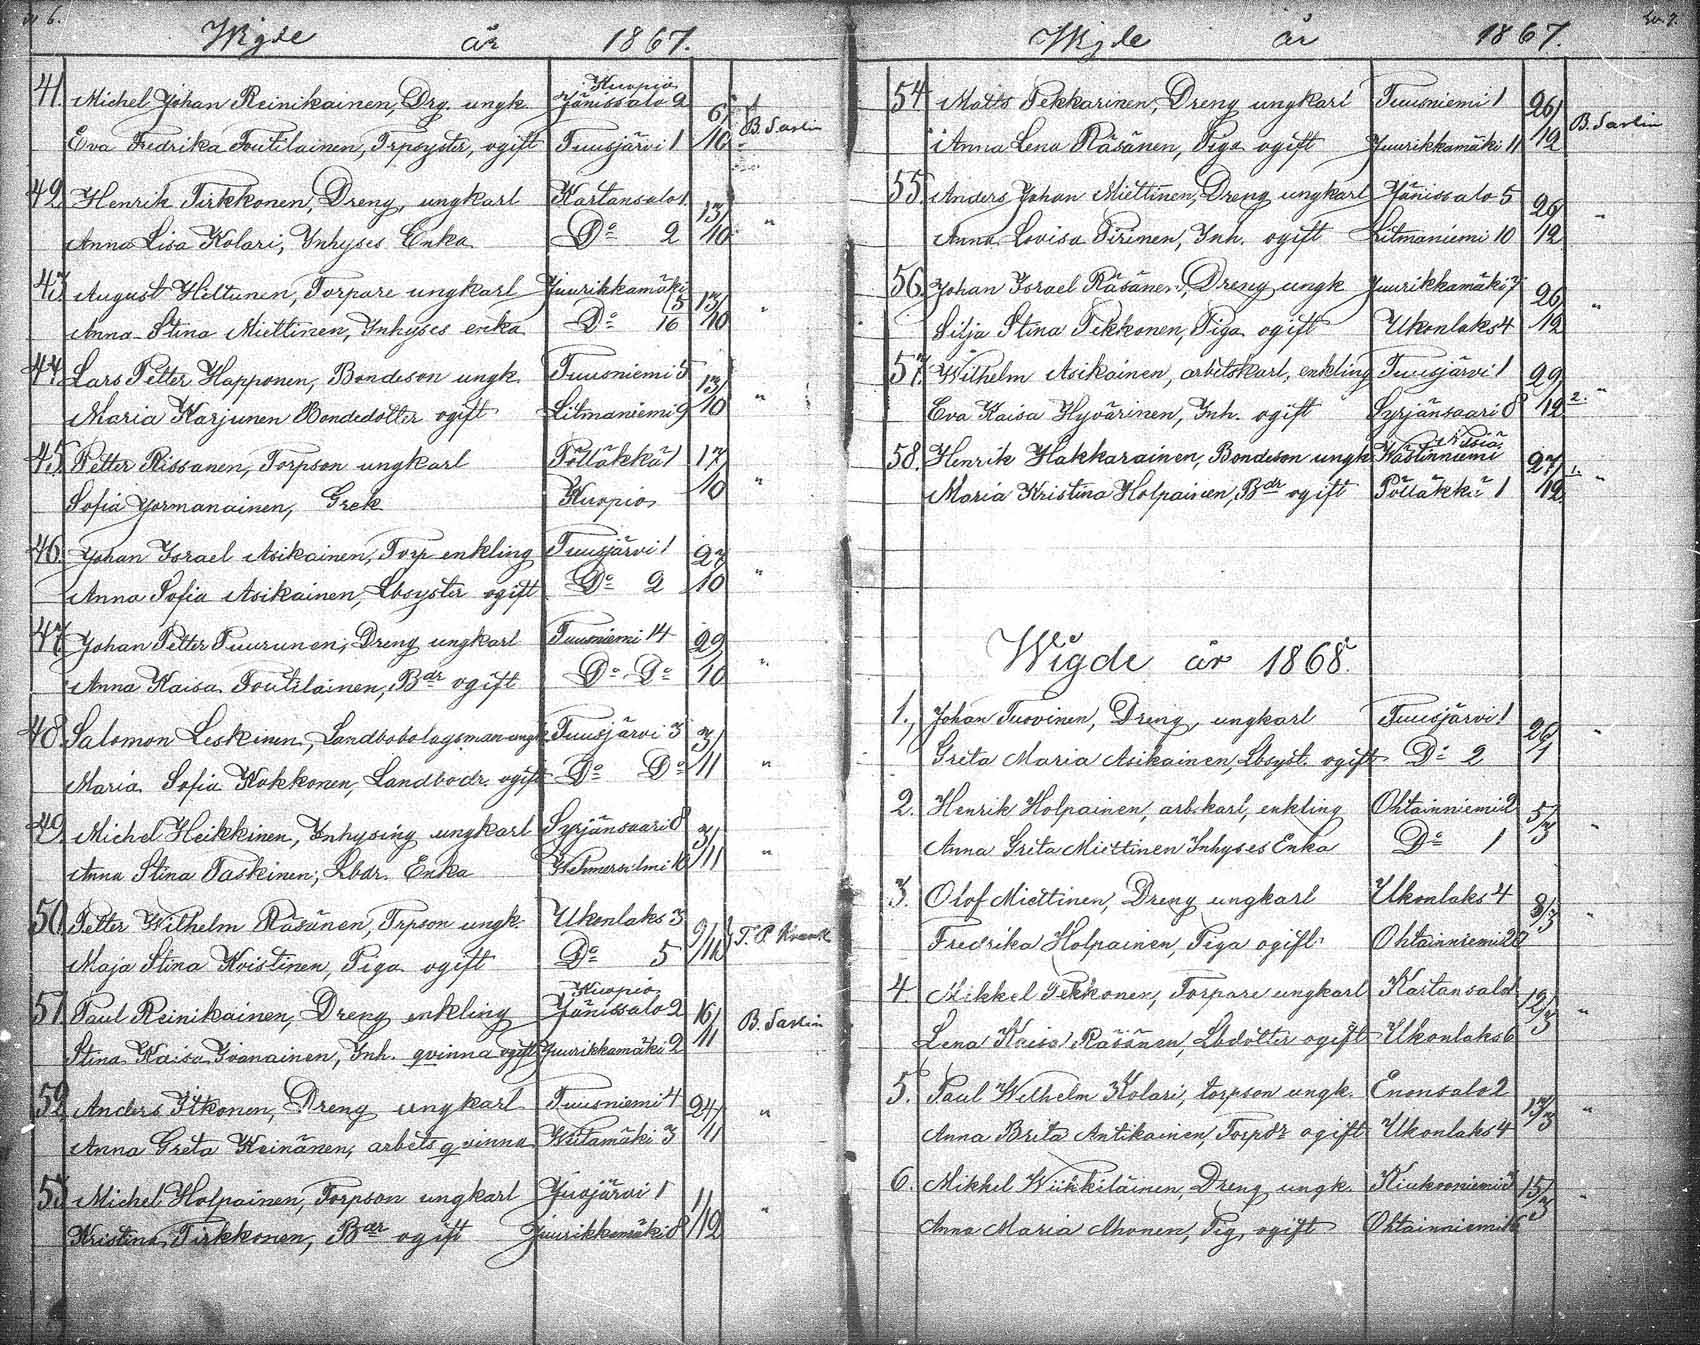 Wigde år 1867.
41. Michel Johan Reinikainen, Drg. ungk. Kuopio Jänissalo 2 6/10 B. Sarlin
Eva Fredrika Toutilainen, Trpsyster, ogift Tuusjärvi 1
42. Henrik Tirkkonen, Dreng, ungkarl Kartansalo 1. 13/10 "
Anna Lisa Kolari, Inhyses Enka Do 2
43. August Hiltunen, Torpare ungkarl Juurikkamäki 5 13/10 "
Anna Stina Miettinen, Inhyses enka Do 16
44. Lars Petter Happonen, Bondeson ungk. Tuusniemi 5 13/10 "
Maria Karjunen Bondedotter ogift Litmaniemi 9
45. Petter Rissanen, Torpson ungkarl Pölläkkä 1 17/10 "
Sofia Jormanainen, Grek Kuopio
46. Johan Israel Asikainen, Torp enkling Tuusjärvi 1 27/10 "
Anna Sofia Asikainen, Lbsyster ogift Do 2
47. Johan Petter Tuurunen, Dreng ungkarl Tuusniemi 14 29/10 "
Anna Kaisa Toutilainen, Bdr ogift Do Do
48. Salomon Leskinen, Landbobolagsman ungk Tuusjärvi 3 3/11 "
Maria Sofia Kokkonen, Landbodr. ogift Do Do
49. Michel Heikkinen, Inhysing ungkarl Syrjänsaari 8 3/11 "
Anna Stina Taskinen, Lbdr. Enka Wehmersalmi 10
50. Petter Wilhelm Räsänen, Trpson ungk. Ukonlaks 3 9/11 T. P. Krank
Maja Stina Koistinen, Piga ogift Do 5
51. Paul Reinikainen, Dreng enkling Kuopio Jänissalo 2 16/11 B. Sarlin
Stina Kaisa Ivanainen, Inh. qvinna ogift Juurikkamäki 2
52. Anders Itkonen, Dreng ungkarl Tuusniemi 4 24/11 "
Anna Greta Keinänen, arbetsqvinna Wiitamäki 3
53. Michel Holpainen, Torpson ungkarl Juojärvi 1 1/12 "
Kristina Tirkkonen, Bdr ogift Juurikkamäki 8
Wigde år 1867.
54. Matts Pekkarinen, Dreng ungkarl Tuusniemi 1 26/12 B. Sarlin
Anna Lena Räsänen, Piga ogift Juurikkamäki 11
55. Anders Johan Miettinen, Dreng ungkarl Jänissalo 5 26/12 "
Anna Lovisa Tirinen, Inh. ogift Litmaniemi 10
56. Johan Israel Räsänen, Dreng ungk Juurikkamäki 7 26/12 "
Lilja Stina Pekkonen, Piga ogift Ukonlaks 4
57. Wilhelm Asikainen, arbetskarl, enkling Tuusjärvi 1 29/12 2. "
Eva Kaisa Hyvärinen, Inh. ogift Syrjänsaari 8
58. Henrik Hakkarainen, Bondeson ungk Nilsiä Wästinniemi 27/12 1. "
Maria Kristina Holpainen, Bdr ogift Pölläkkä 1
Wigde år 1868.
1. Johan Tuovinen, Dreng, ungkarl Tuusjärvi 1 26/1 "
Greta Maria Asikainen, Lbsyst. ogift Do 2
2. Henrik Holpainen, arb.karl, enkling Ohtainniemi 2 5/3 "
Anna Greta Miettinen Inhyses Enka Do 1
3. Olof Miettinen, Dreng ungkarl Ukonlaks 4 8/3 "
Fredrika Holpainen, Piga ogift Ohtainniemi 20
4. Mikkel Pekkonen, Torpare ungkarl Kartansalo 1 12/3 "
Lena Kaisa Räsänen, Lbdotter ogift Ukonlaks 6
5. Paul Wilhelm Kolari, torpson ungk. Enonsalo 2 13/3 "
Anna Brita Antikainen, Torpdr ogift Ukonlaks 4
6. Mikkel Wiikkiläinen, Dreng ungk. Kiukooniemi 3 15/3 "
Anna Maria Ahonen, Pig, ogift Ohtainniemi 16